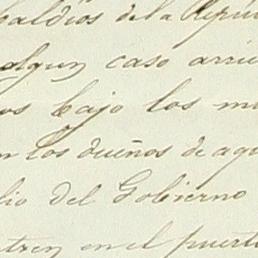 baldíos de la Repú
algun caso arri
os bajo los m
n los dueños de aqu
lio del Gobierno
tren en el puert